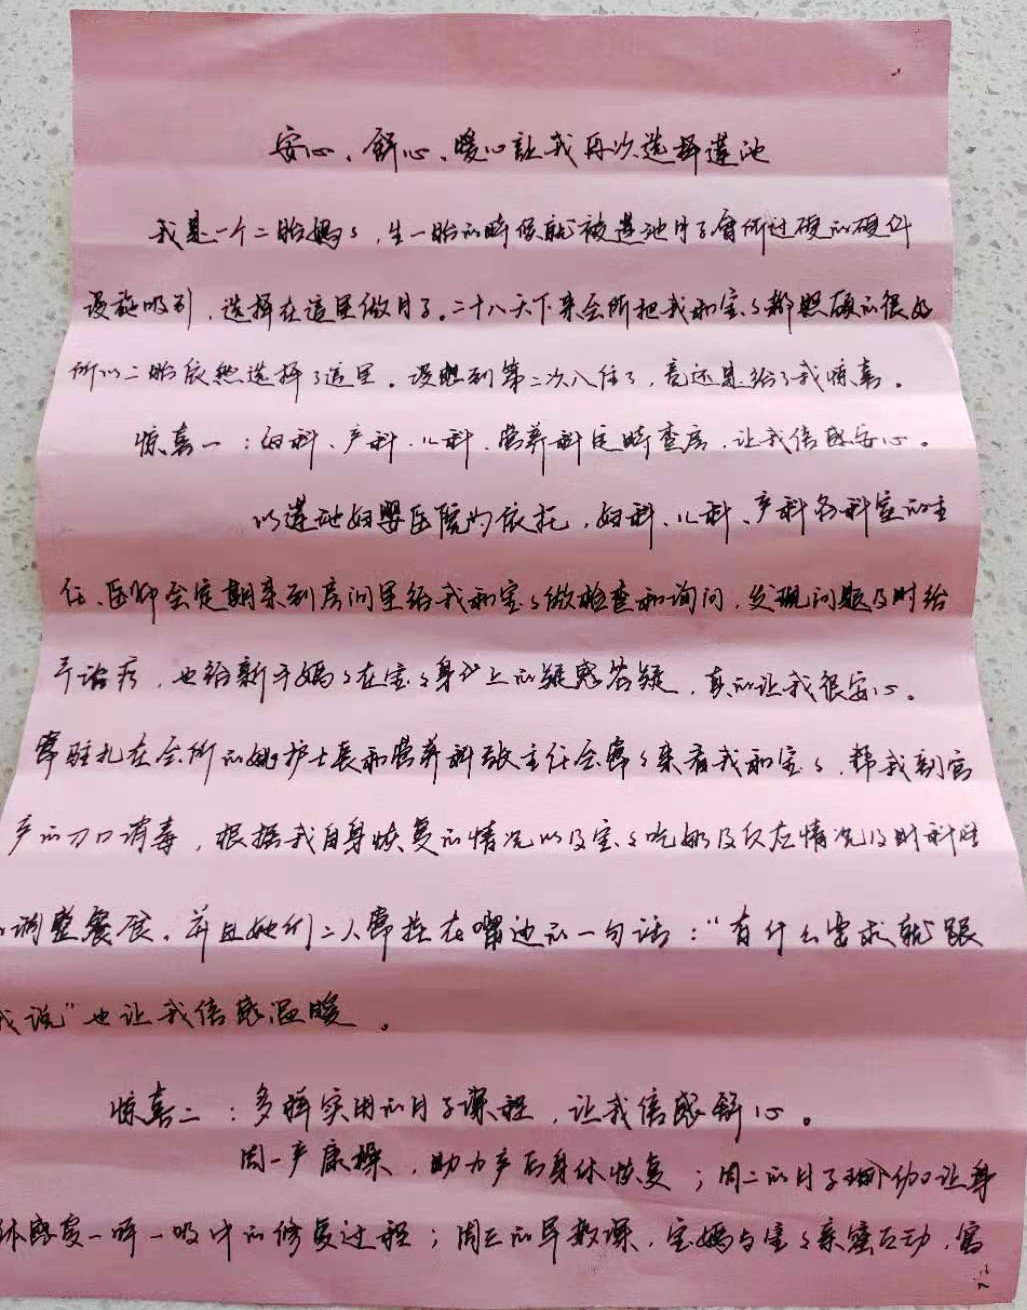 安心、舒心、暖心让我再次选择莲池
我是一个二胎妈妈，生一胎的时候就被莲池月子会所过硬的硬件
设施吸引，选择在这里做月子。二十八天下来会所把我和宝宝都照顾的很好
所以二胎依然选择了这里。没想到第二次入住了，竟还是给了我惊喜。
惊喜一：妇科、产科、儿科、营养科定时查房，让我倍感安心。
以莲池妇婴医院为依托，妇科、儿科、产科各科室的主
任、医师会定期来到房间里给我和宝宝做检查和询问，发现问题及时给
予治疗，也给新手妈妈在宝宝身上的疑惑答疑，真的让我很安心。
常驻扎在会所的姚护士长和营养科张主任会常常来看我和宝宝，帮我剖宫
产的刀口消毒，根据我自身恢复的情况以及宝宝吃奶及反应情况及时科学
的调整餐食，并且她们二人常挂在嘴边的一句话："有什么需求就跟
我说"也让我倍感温暖。
惊喜二：多样实用的月子课程，让我倍感舒心。
周一产康操，助力产后身体恢复；周二的月子瑜伽让身
体感受一呼一吸中的修复过程；周三的早教课，宝妈与宝宝亲密互动，富